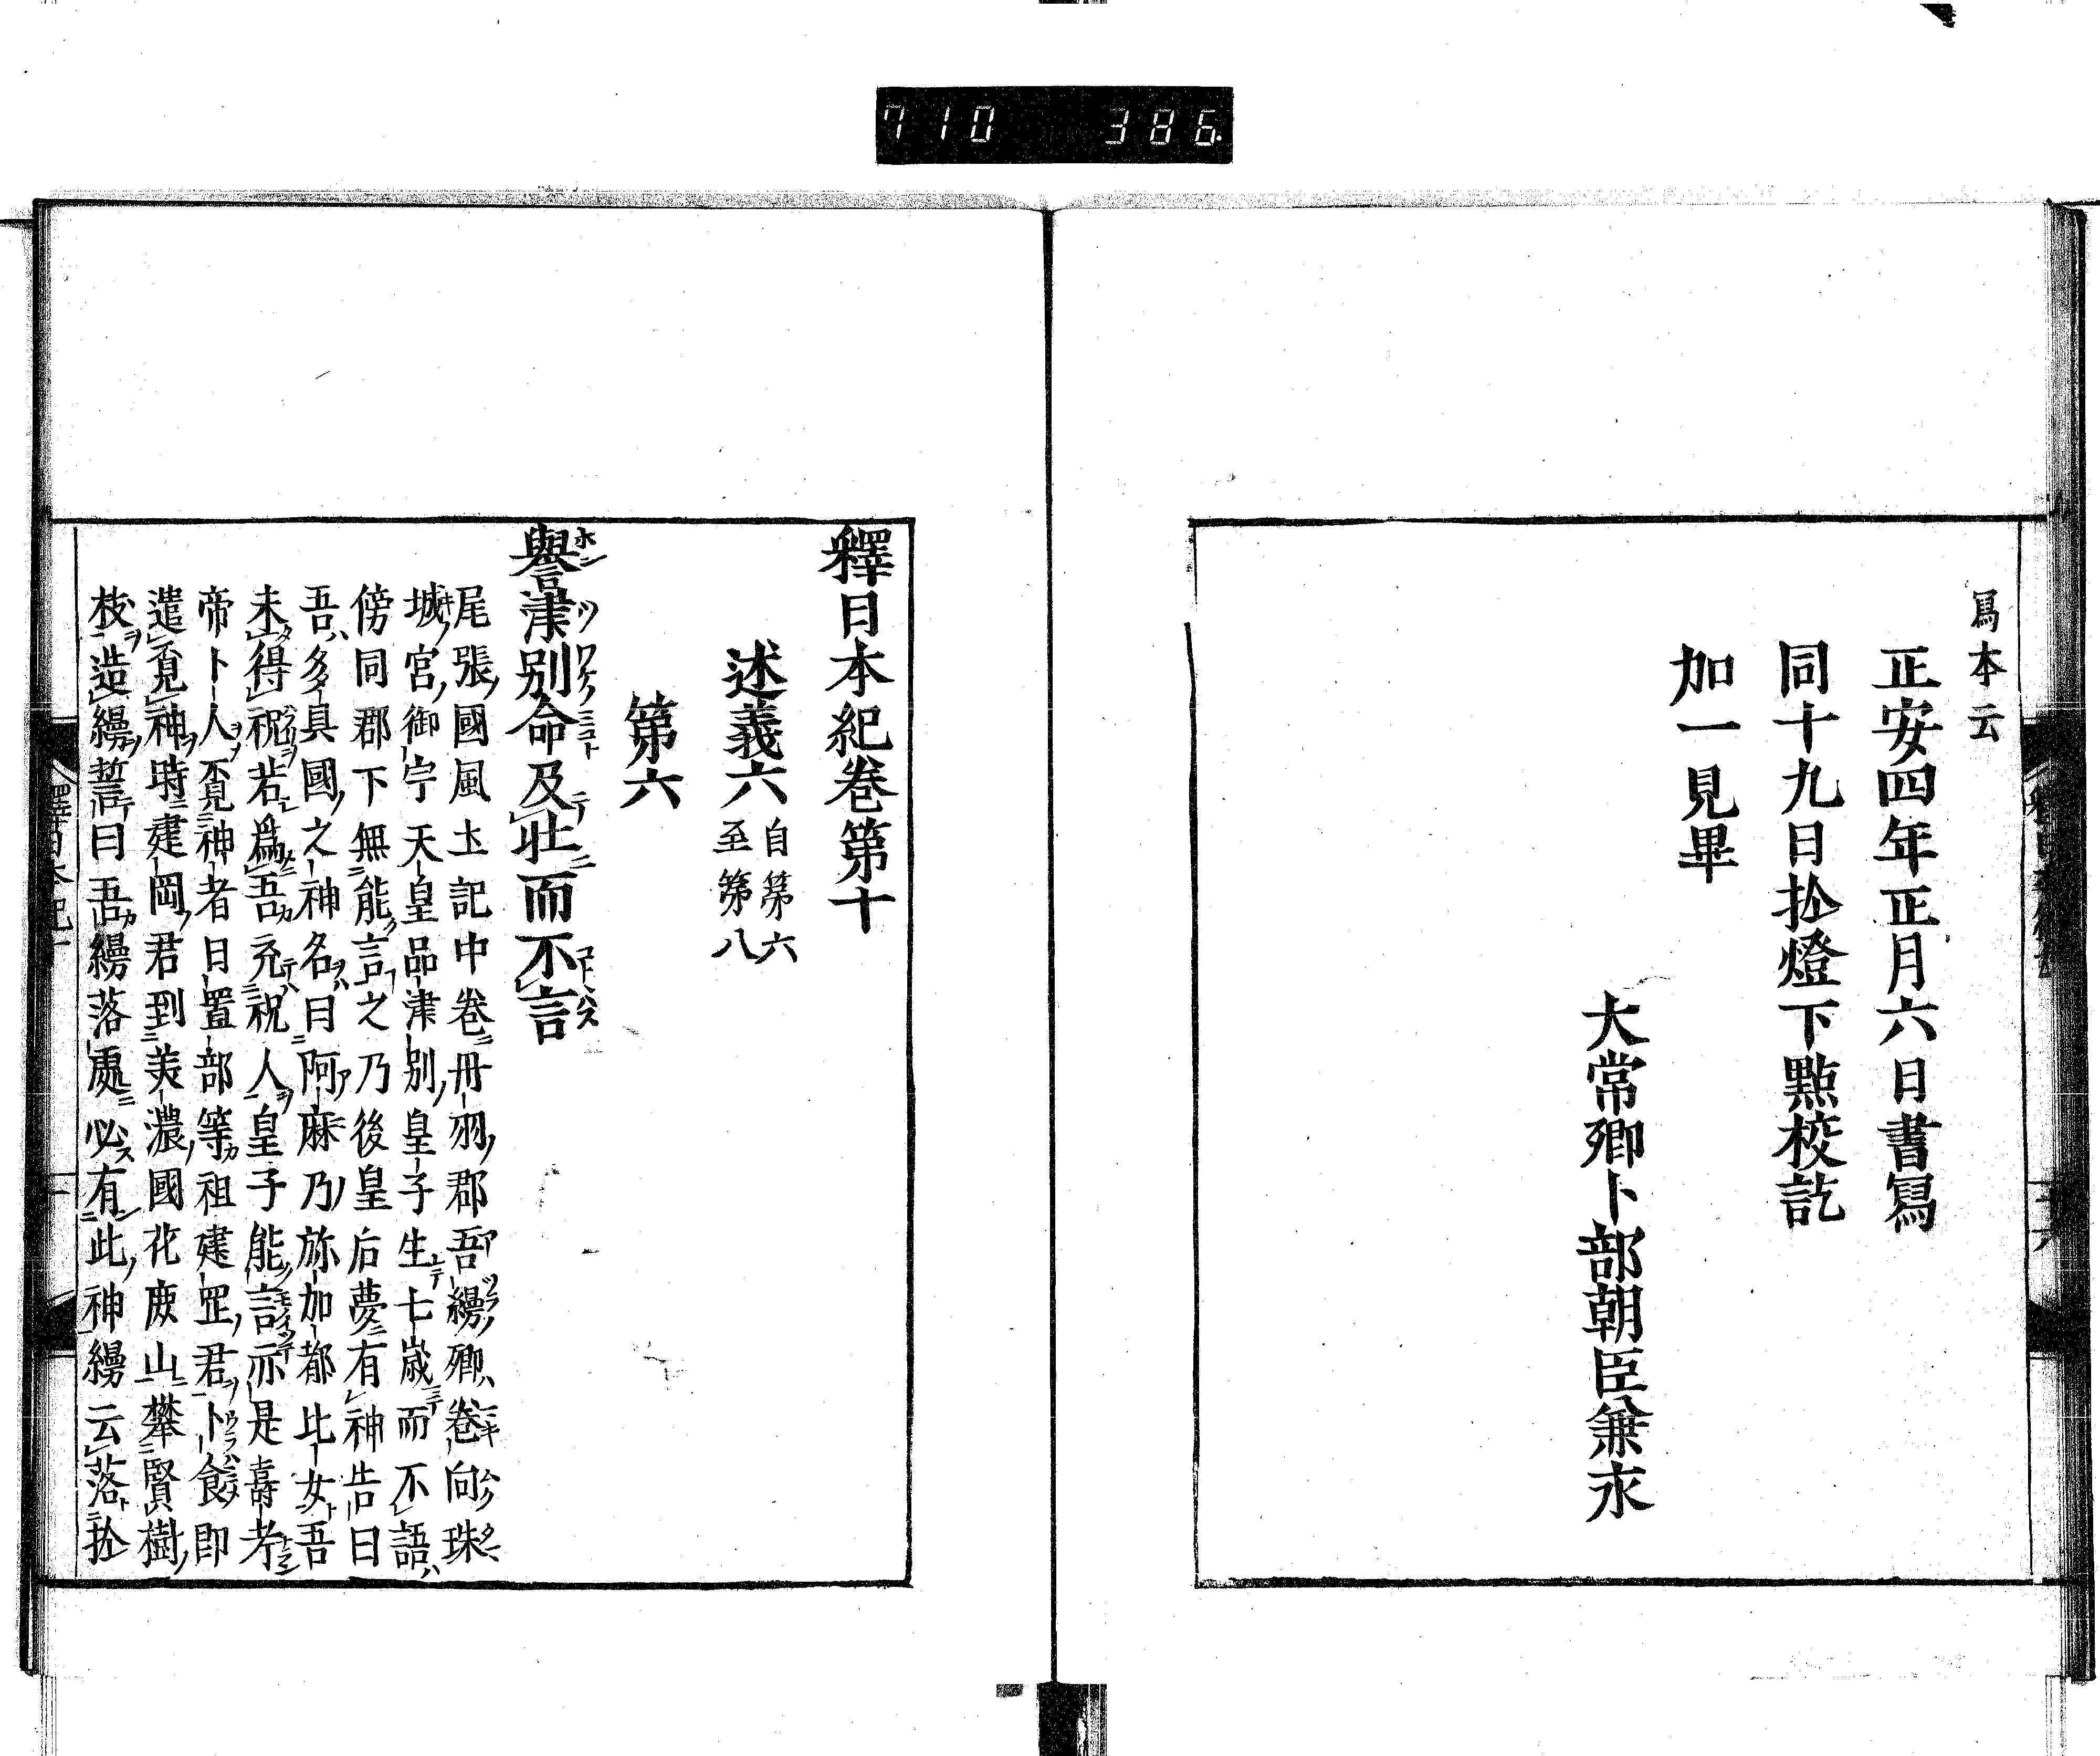 710 386
寫本云
正安四年正月六日書寫
同十九日扵燈下點校訖
加一見畢
大常卿卜部朝臣兼永
釋日本紀卷第十
述義六自第六至第八
第六
譽津別命及壯而不言
尾張國風土記中卷丹羽郡吾縵鄉卷向珠
城宮御宇天皇品津別皇子生七歲而不語
傍同郡下無能言之乃後皇后夢有神告曰
吾多具國之神名曰阿麻乃弥加都比女吾
未得祝若爲吾充祝人皇子能言亦是壽考
帝卜人覓神者日置部等祖建罡君卜食即
遣覓神時建岡君到美濃國花鹿山攀賢樹
枝造縵誓曰吾縵落處必有此神縵云落扵